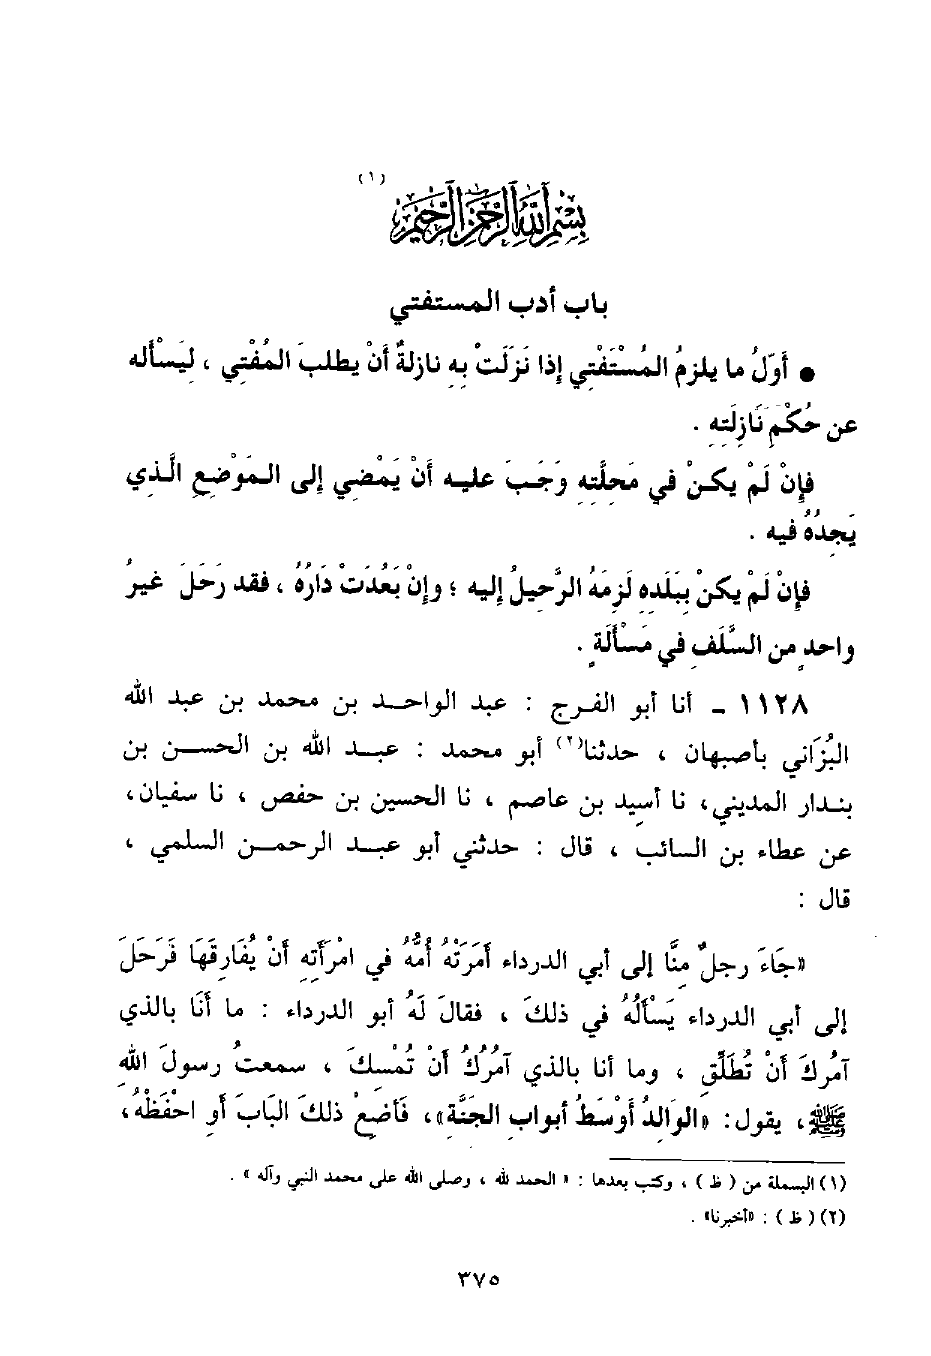 (١)
بسم الله الرحمن الرحيم
باب أدب المستفتي
● أَوَّلُ ما يلزمُ المُسْتَفْتِي إِذا نَزَلَتْ بِهِ نازلةٌ أَنْ يطلبَ المُفْتِي ، لِيَسْأَله
عن حُكْمِ نَازِلَتِهِ .
فإِنْ لَمْ يكنْ في مَحلَّتِهِ وَجَبَ عليه أَنْ يَمْضِي إلى المَوْضِعِ الَّذِي
يَجِدُهُ فيه .
فإِنْ لَمْ يكنْ بِبَلَدِهِ لَزِمَهُ الرَّحيلُ إليه ؛ وإِنْ بَعُدَتْ دَارُهُ ، فقد رَحَلَ غيرُ
واحدٍ مِن السَّلَفِ في مَسْأَلَةٍ .
١١٢٨ ـ أنا أبو الفرج : عبد الواحد بن محمد بن عبد الله
البُزَاني بأصبهان ، حدثنا(٢) أبو محمد : عبد الله بن الحسن بن
بندار المديني، نا أسيد بن عاصم ، نا الحسين بن حفص ، نا سفيان،
عن عطاء بن السائب ، قال : حدثني أبو عبد الرحمن السلمي ،
قال :
«جَاءَ رجلٌ مِنَّا إلى أبي الدرداء أَمَرَتْهُ أُمُّهُ في امْرَأَتِهِ أَنْ يُفَارِقَهَا فَرَحَلَ
إلى أبي الدرداء يَسْأَلُهُ في ذلكَ ، فقالَ لَهُ أبو الدرداء : ما أَنَا بالذي
آمُرُكَ أَنْ تُطَلِّقِ ، وما أنا بالذي آمُرُكُ أَنْ تُمْسِكَ ، سمعتُ رسولَ اللهِ
ﷺ، يقول: «الوَالِدُ أَوْسَطُ أبوابِ الجَنَّة»، فَأَضِعْ ذلكَ البَابَ أَو احْفَظْهُ،
(١) البسملة من ( ظ ) ، وكتب بعدها : « الحمد لله ، وصلى الله على محمد النبي وآله » .
(٢) ( ظ ) : «أخبرنا» .
٣٧٥